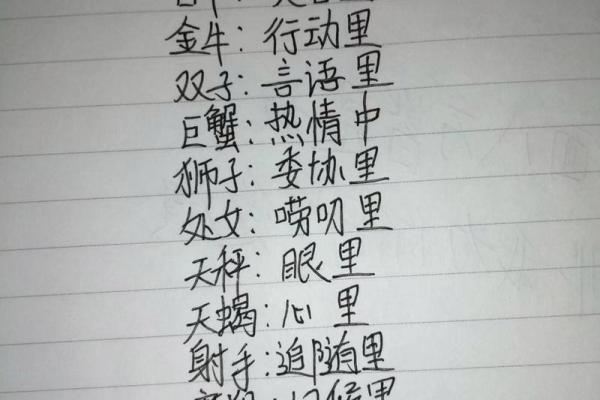 金牛：行动里
双子：言语里
巨蟹：热情中
狮子：委协里
处女：唠叨里
天秤：眼里
天蝎：心里
射手：追随里